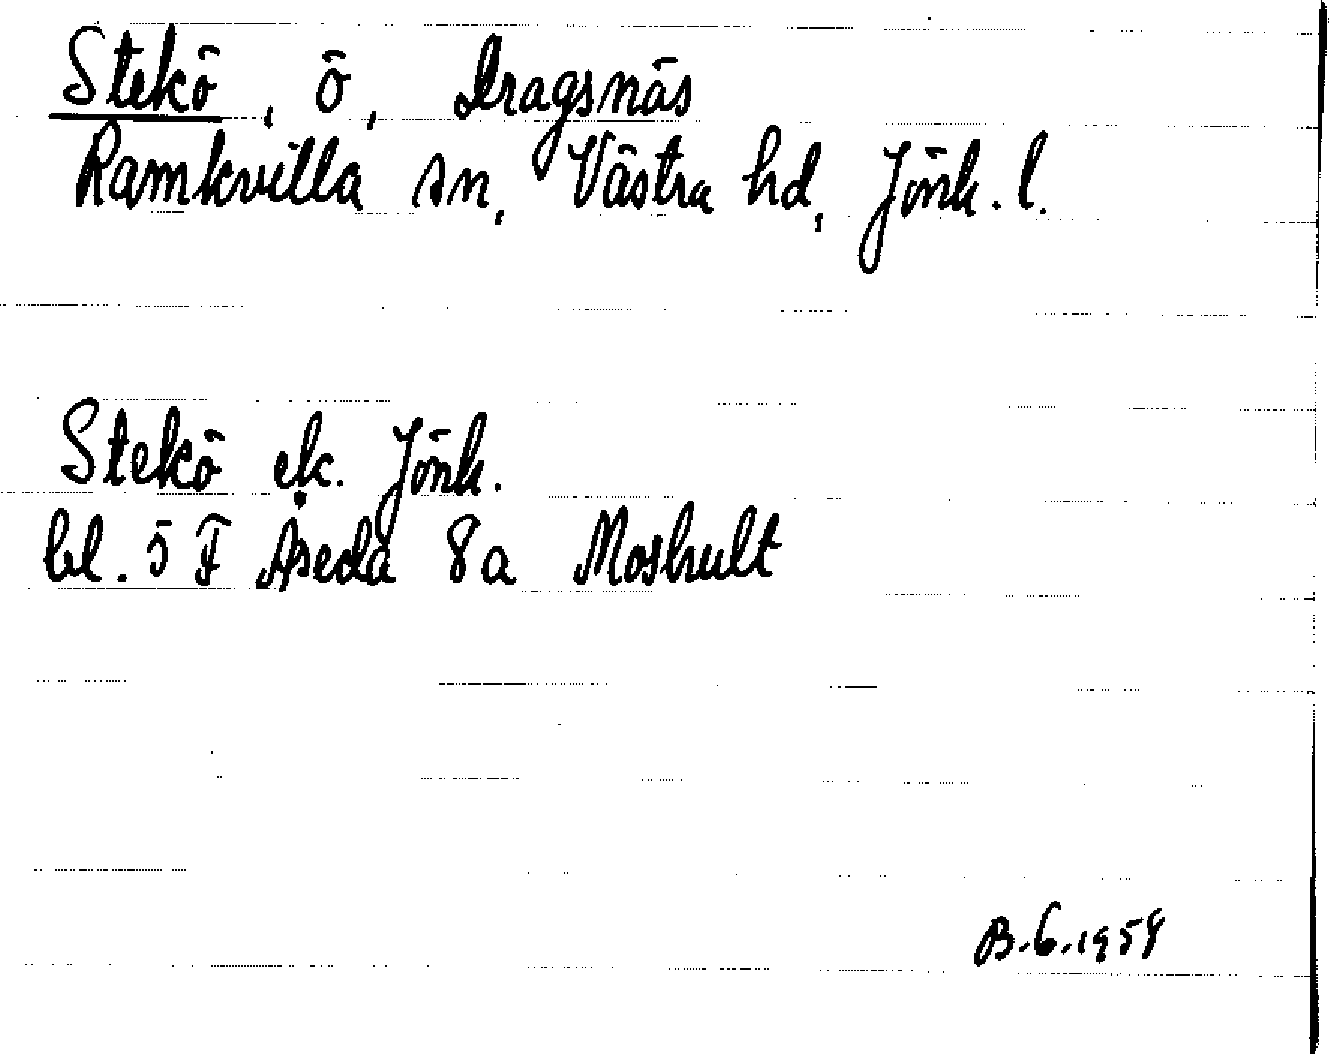 Stekö, ö, Dragsnäs
Ramkvilla sn, Västra hd, Jönk. l.
Stekö ek. Jönk.
bl. 5 F Åseda 8a Moshult
B.G. 1959